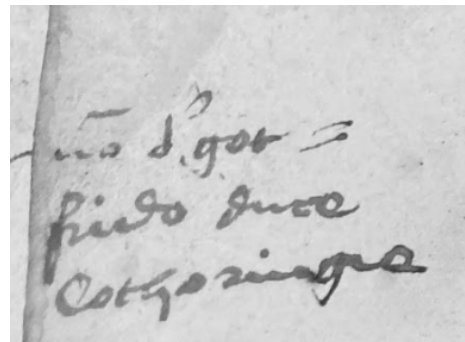 n̄o d' got=
frido duce
Lothoringie